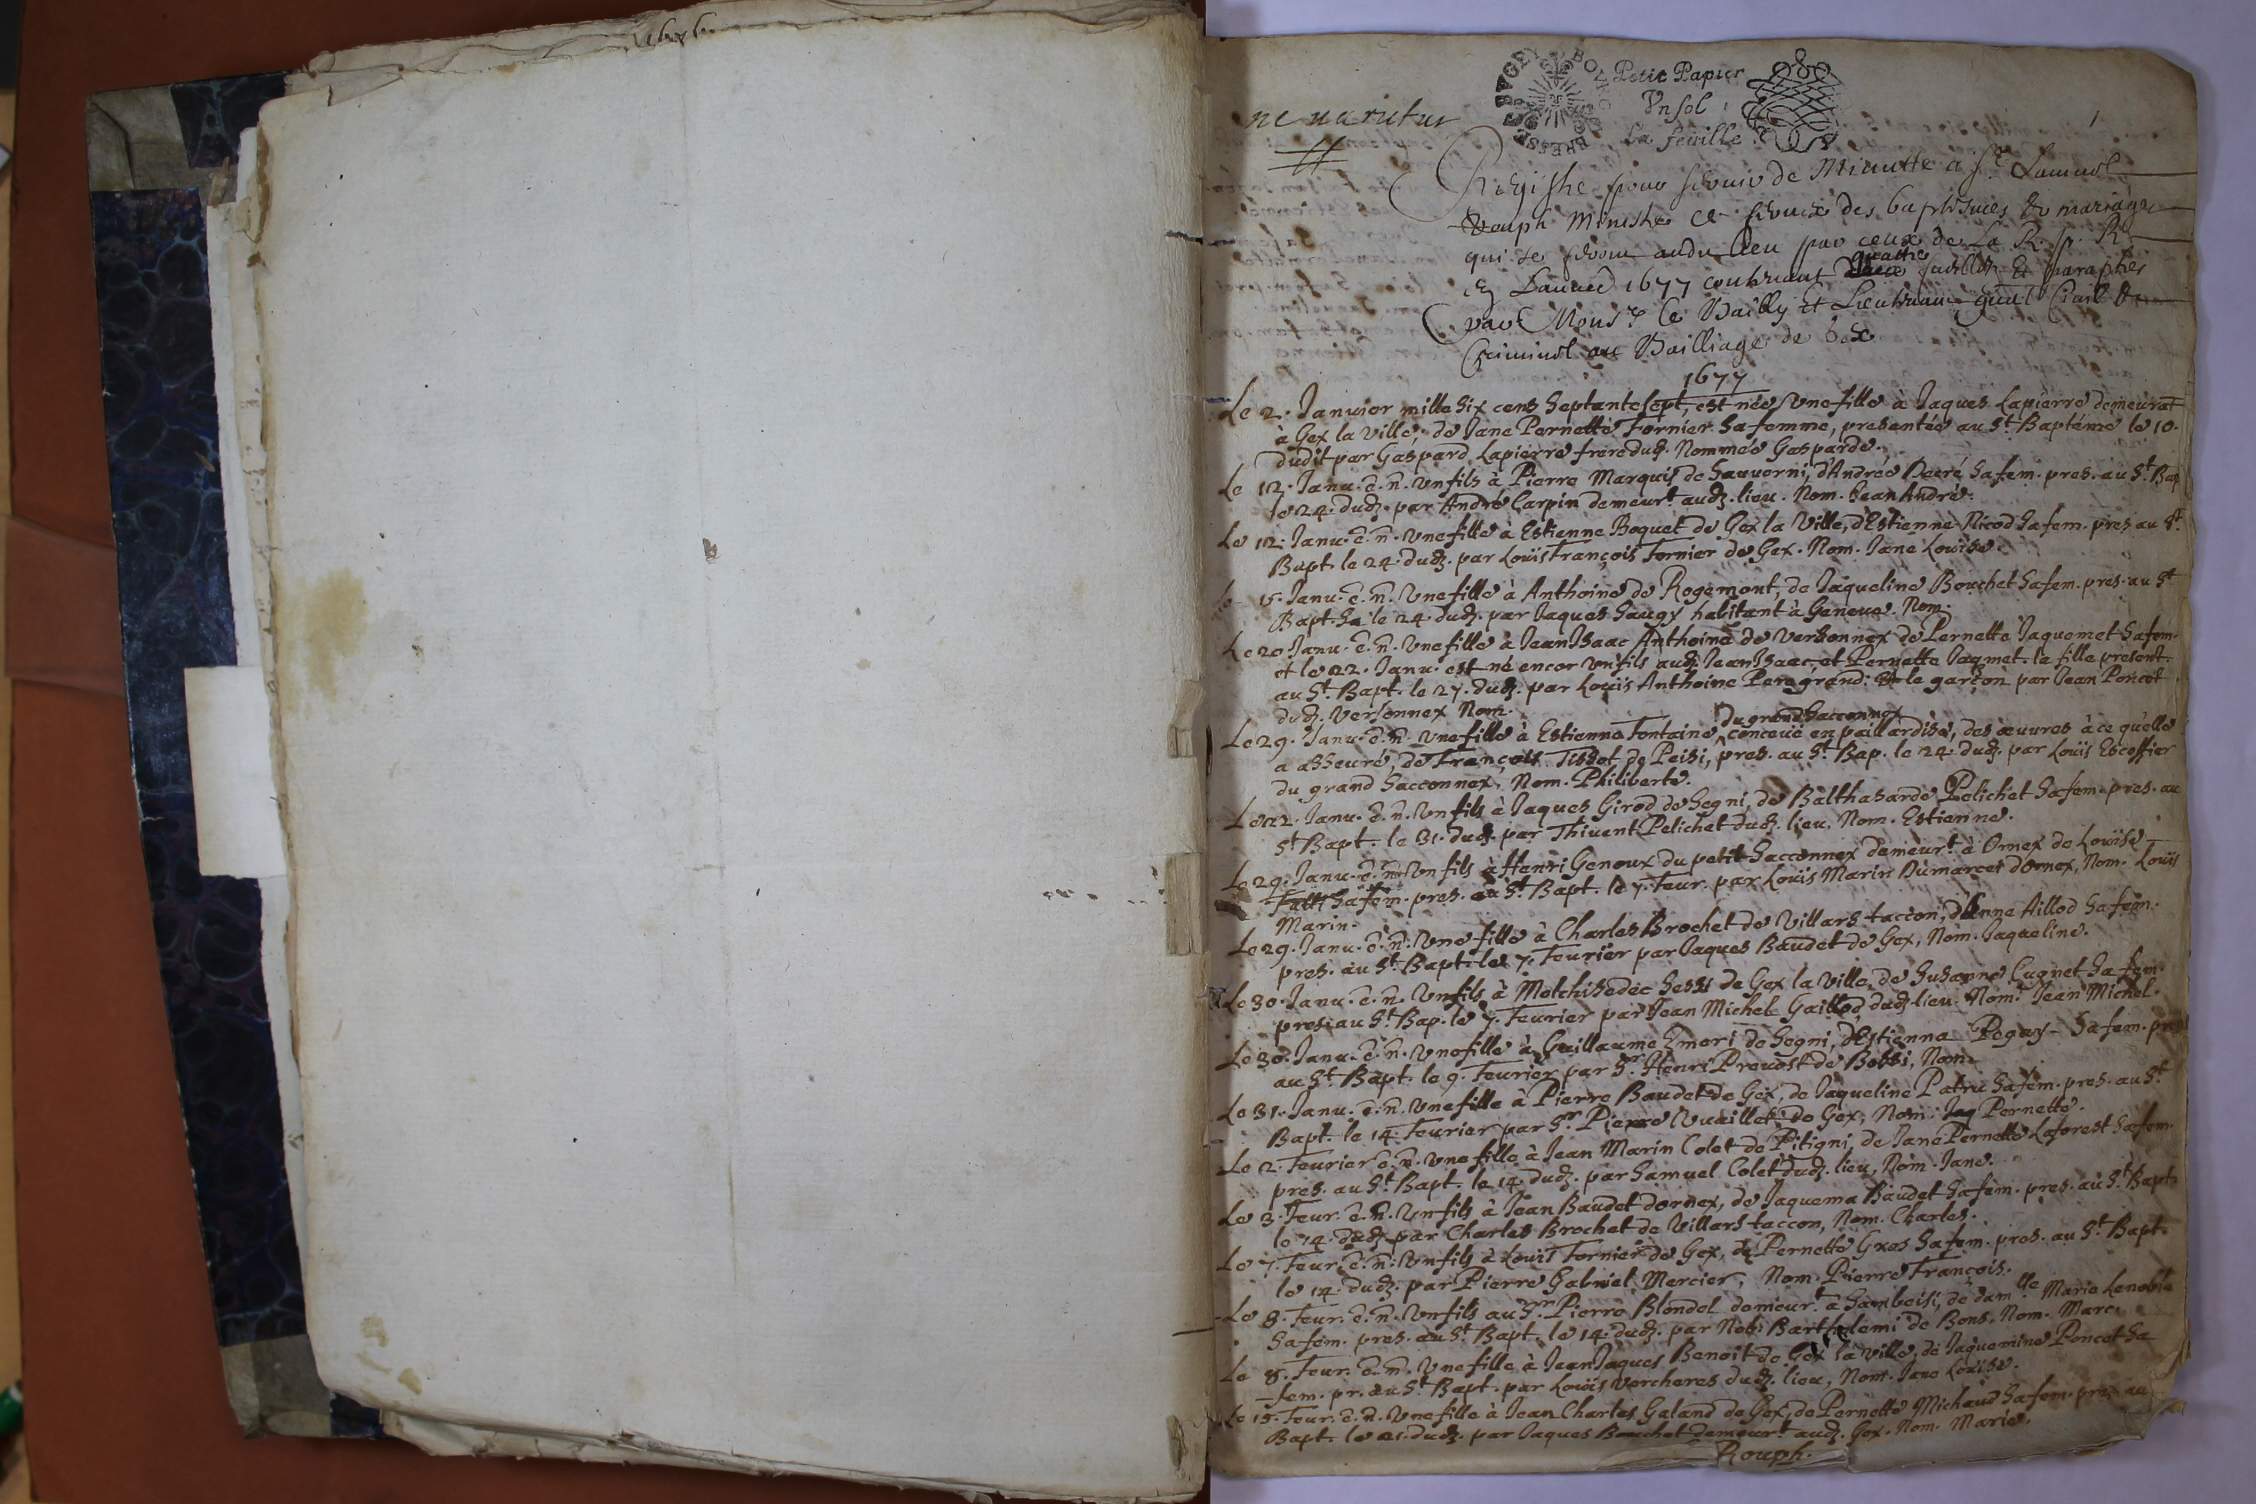 1676
BRESSE BUGEY BOURG
Petit Papier
Un sol
La feuille
1
ne varietur
Registre pour servir de Minutte a Sr. Samuel
Rouph Ministre et servir des baptesmes et mariages
qui se feront audit lieu par ceux de La R. p. R.
en Lannée 1677 contenant quatre feuillets Et paraphés
par Monsr. le Bailly et Lieutenant gnal Civil et
Criminel au Bailliage de Gex
1677
Le 2. Januier mille six cens septante sept, est née Une fille à Jaques Lapierre demeurat
à Gex la ville, de Jane Pernette Fornier sa femme, presentée au St. Baptéme le 10.
dudit par Gaspard Lapierre frere dud. Nommée Gasparde.
Le 12. Janu. e. n. Un fils à Pierre Marquis de Sauuorni, d'Andrée Decré sa fem. pres. au St. Bap
le 24. dud. par André Carpin demeurt. aud. lieu. Nom. Jean André.
Le 12. Janu. e. n. Une fille à Estienne Boquet de Gex la Ville, d'Estienne Nicod sa fem. pres au St.
Bapt. le 24. dud. par Louïs François Fornier de Gex. Nom. Jane Louïse.
Le 15. Janu. e. n. Une fille à Anthoine de Rogemont, de Jaqueline Bouchet sa fem. pres. au St
Bapt. le 24. dud. par Jaques Saugy habitant à Geneue. Nom.
Le 20 Janu. e. n. Une fille à Jean Isaac Anthoine de Versonnex de Pernette Jaquemet sa fem.
et le 22. Janu. est né encor Un fils aud. Jean Isaac et Pernette Jaqmet. la fille present.
au St. Bapt. le 27. dud. par Louïs Anthoine Pere grand: le garçon par Jean Poncet
dud. Versonnex Nom.
du grand Sacconnex
Le 29. Janu. e. n. Une fille à Estienna Fontaine conceuë en paillardise, des œuures à ce qu'elle
a asseuré, de François Tissot de Peisi, pres. au St. Bap. le 24. dud. par Louïs Escoffier
du grand Sacconnex, Nom. Philiberte.
Le 22. Janu. e. n. Un fils à Jaques Girod de Segni, de Balthasarde Pelichet sa fem. pres. au
St. Bapt. le 31. dud. par Thiuent Pelichet dud. lieu. Nom. Estienne.
Le 29. Janu. e. n. Un fils à Henri Genoux du petit Sacconnex demeurt. à Ornex de Louïse
Fatti sa fem. pres. au St. Bapt. le 7. Feur. par Louïs Marin Dumarcet d'Ornex, Nom. Louïs
Marin.
Le 29. Janu. e. n. Une fille à Charles Brochet de Villars taccon, d'Anne Aillod sa fem.
pres. au St. Bapt. le 7. Feurier par Jaques Baudet de Gex, Nom. Jaqueline.
Le 30. Janu. e. n. Un fils à Melchisedec de Gex la ville, de Susanne Cugnet sa fem.
pres. au St. Bap. le 7. Feurier par Jean Michel Gaillod dud. lieu. Nom. Jean Michel.
Le 30. Janu. e. n. Une fille à Guillaume Emeri de Segni, d'Estienna Pogay sa fem. pres
au St. Bapt. le 9. Feurier par Sr. Henri Preuost de Bossi, Nom.
Le 31. Janu. e. n. Une fille à Pierre Baudet de Gex, de Jaqueline Patru sa fem. pres. au St
Bapt. le 14. Feurier par Sr. Pierre Vuaillet de Gex, Nom. Pernette.
Le 2. Feurier e. n. Une fille à Jean Marin Colet de Pitigni, de Jane Pernette Laforest sa fem.
pres. au St. Bapt. le 14. dud. par Samuel Colet dud. lieu, Nom. Jane.
Le 3. Feur. e. n. Un fils à Jean Baudet dornex, de Jaquema Baudet sa fem. pres. au St. Bapt.
le 14. dud. par Charles Brochet de Villars taccon, Nom. Charles.
Le 7. Feur. e. n. Un fils à Louïs Fornier de Gex, de Pernette Gros sa fem. pres. au St. Bapt.
le 14. dud. par Pierre Gabriel Mercier, Nom. Pierre François.
Le 8. Feur. e. n. Un fils au Sr. Pierre Blondel demeurt. à Sambeisi, de damlle Marie Lenoble
sa fem. pres. au St. Bapt. le 14. dud. par Nob. Barthelemi de Bons. Nom. Marc.
Le 8. Feur. e. n. Une fille à Jean Jaques Benoit de Gex la ville, de Jaquemine Poncet sa
fem. pr. au St. Bapt. par Louïs Vercheres dud. lieu, Nom. Jane Louïse.
Le 15. Feur. e. n. Une fille à Jean Charles Galand de Gex, de Pernette Michaud sa fem. pres. au
Bapt. le 21. dud. par Jaques Bouchet demeurt. aud. Gex. Nom. Marie.
Rouph.